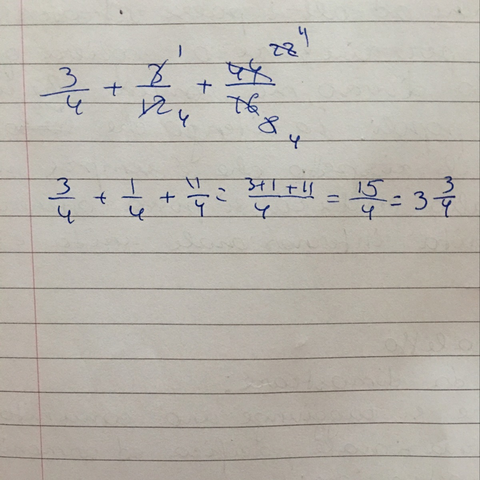 3/4 + 3̶ 1/1̶2̶ 4 + 4̶4̶ 2̶2̶ 4/1̶6̶ 8̶ 4
3/4 + 1/4 + 11/4 = 3+1+11/4 = 15/4 = 3 3/4